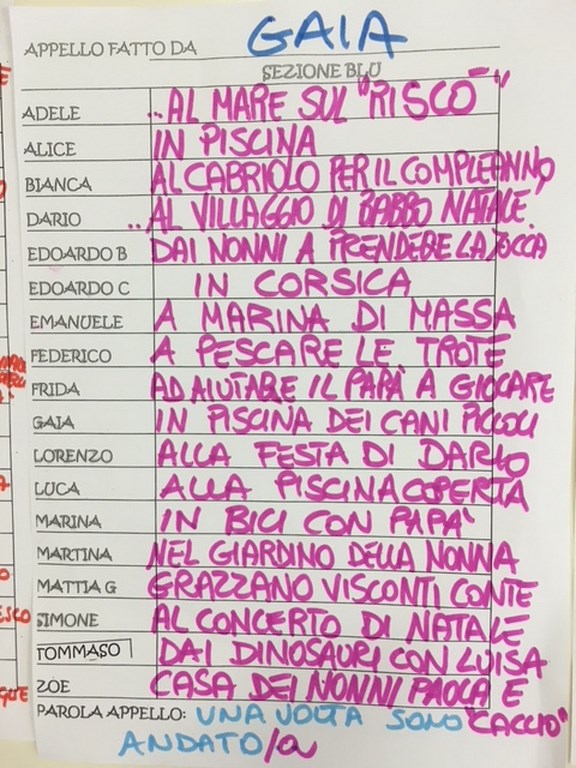 APPELLO FATTO DA GAIA
SEZIONE BLU
ADELE ..AL MARE SUL "RISCÒ"
ALICE IN PISCINA
BIANCA AL CABRIOLO PER IL COMPLEANNO
DARIO ..AL VILLAGGIO DI BABBO NATALE.
EDOARDO B DAI NONNI A PRENDERE LA ZOCCA
EDOARDO C IN CORSICA
EMANUELE A MARINA DI MASSA
FEDERICO A PESCARE LE TROTE
FRIDA AD AIUTARE IL PAPÀ A GIOCARE
GAIA IN PISCINA DEI CANI PICCOLI
LORENZO ALLA FESTA DI DARIO
LUCA ALLA PISCINA COPERTA
MARINA IN BICI CON PAPA'
MARTINA NEL GIARDINO DELLA NONNA
MATTIA G GRAZZANO VISCONTI CONTE
SIMONE AL CONCERTO DI NATALE
TOMMASO DAI DINOSAURI CON LUISA
ZOE CASA DEI NONNI PAOLA E
PAROLA APPELLO: UNA VOLTA SONO "CACCIO"
ANDATO/a